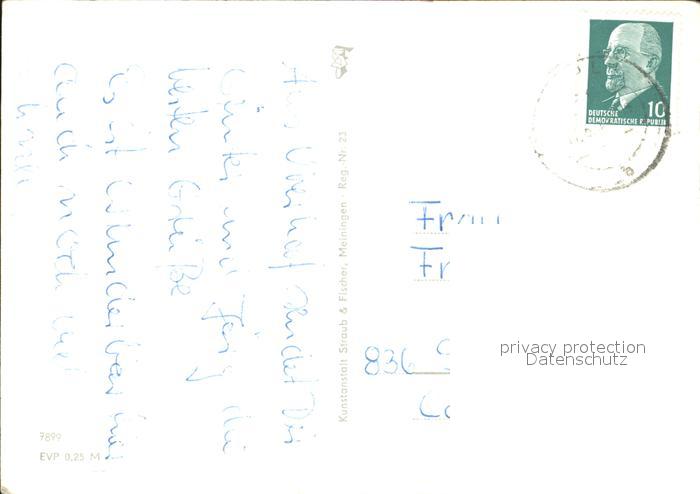 Aus Vierhof sendet Dir
Günter und Jörg die
besten Grüße
Es ist wunderbar hier
auch noch
Kunstanstalt Straub & Fischer, Meiningen - Reg.-Nr. 23
DEUTSCHE 10
DEMOKRATISCHE REPUBLIK
Frau
Fr
836 S
privacy protection
Datenschutz
7899
EVP 0,25 M